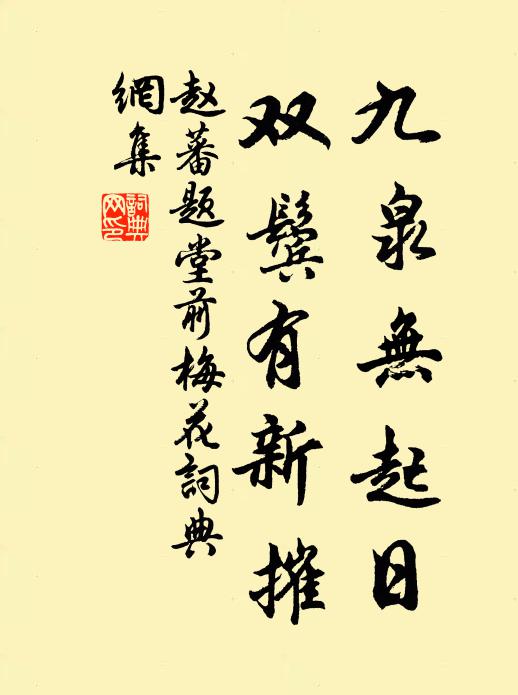 九泉無起日
双鬓有新摧
赵蕃题堂前梅花詞典
網集
詞典
网印